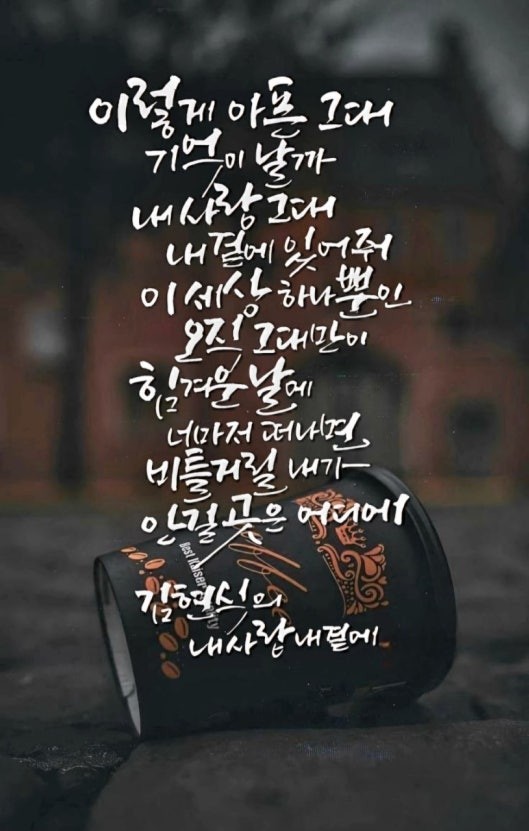 이렇게 아픈 그대
기억이 날까
내 사랑 그대
내 곁에 있어줘
이 세상 하나뿐인
오직 그대만이
힘겨운 날에
너마저 떠나면
비틀거릴 내가
안길 곳은 어디에
김현식의
내사랑 내곁에
Best Kaiser